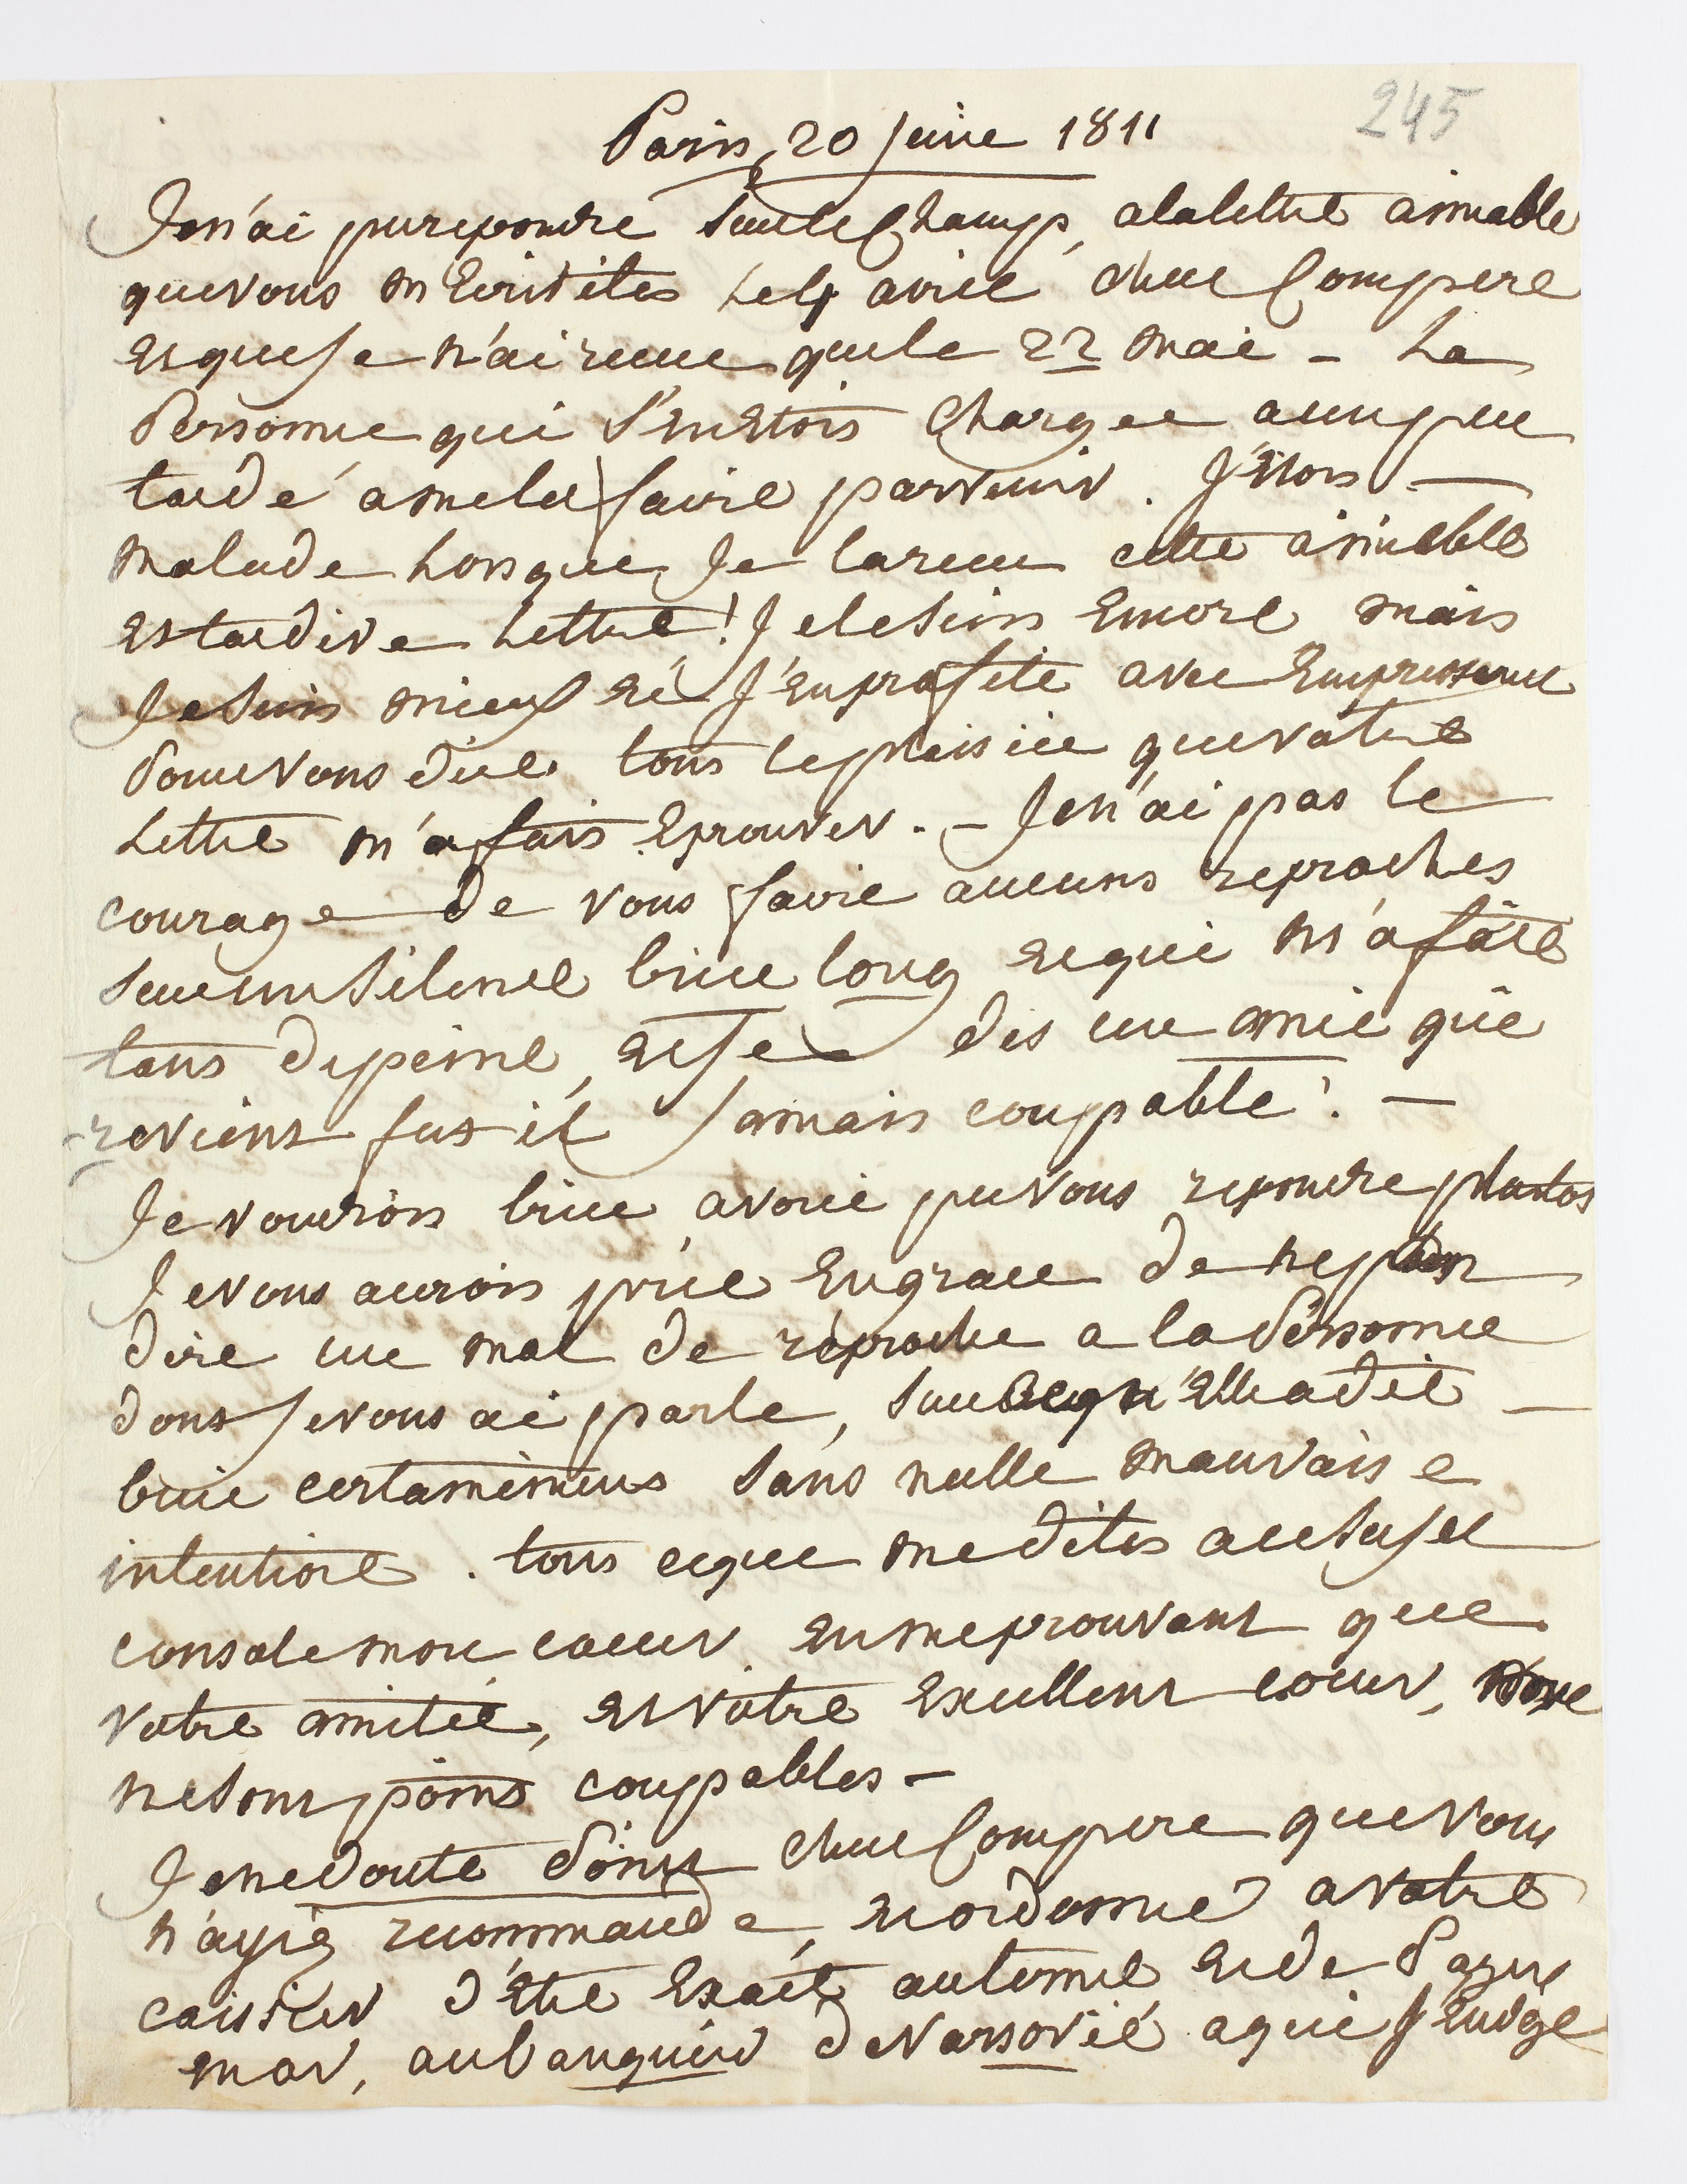 245
Paris, 20 juin 1811
Je n'ai pu repondre sur le champ, a la lettre aimable
que vous m'écrivites le 4 avril cher Compere
et que je n'ai recue que le 22 mai - La
Personne qui s'en etois chargee a un peu
tardé a me la faire parvenir. J'étois -
malade Lorsque je la recu cette aimable
et tardive Lettre! Je le suis encore mais
Je suis mieux et J'en profite avec Empresseme
Pour vous dire tous le plaisir que votre
Lettre m'a fais Eprouver. - Je n'ai pas le
courage de vous faire aucuns reproches
sur un silence bien long et qui m'a fait
tans de peine, et je dis un ami qui
reviens fus il jamais coupable! -
Je voudrois bien avoir pu vous repondre plustos
Je vous aurois prié En grace de ne pas
dire un mot de reproche a la Personne
dons je vous ai parlé, sur ce qu'Elle a dit -
bien certainemens sans nulle mauvaise
intention. tous ce que me dites a ce sujet
console mon coeur En me prouvant que
votre amitié, et votre Excellent coeur,
ne sont poins coupables -
Je ne doute Poins cher Compere que vous
n'ayié recommandé, et ordonné a votre
caissier d'Etre Exact au terme et de Payer
mar, au banquier de Varsovie a qui J'envoye